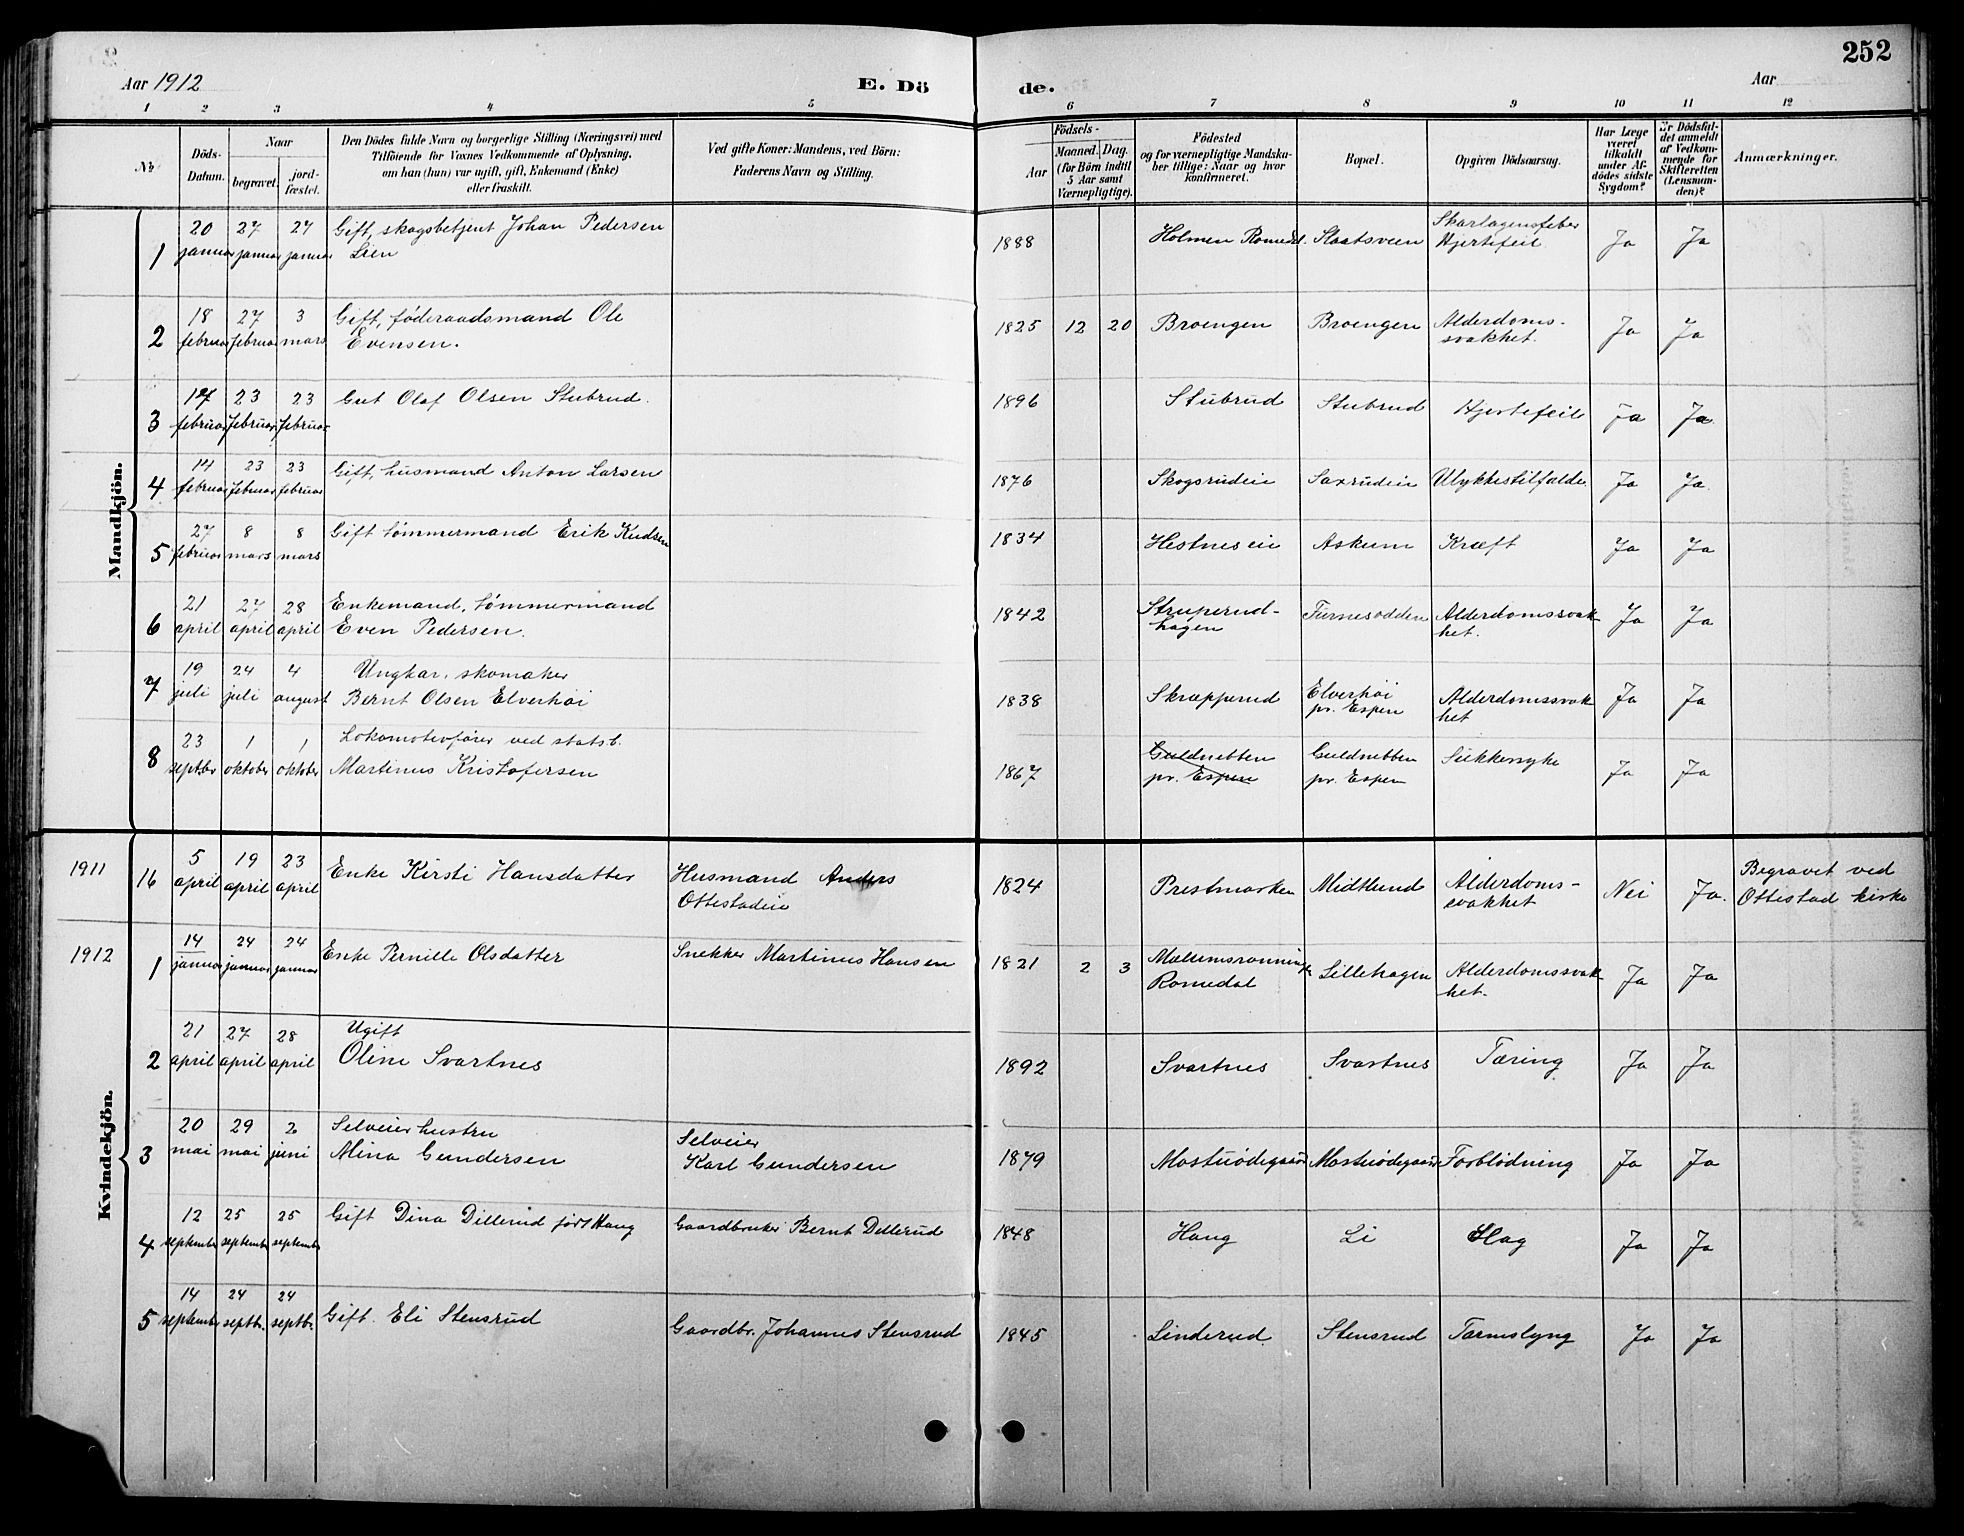 252
Aar 1912
E. Dö
de.
Aar
1 2 3 4 5 6 7 8 9 10 11 12
No.
Döds-
Datum.
Naar
begravet.
jord-
fæstet.
Den Dödes fulde Navn og borgerlige Stilling (Næringsvei) med
Tilföiende for Voxnes Vedkommende af Oplysning,
om han (hun) var ugift, gift, Enkemand (Enke)
eller fraskilt.
Ved gifte Koner: Mandens, ved Börn:
Faderens Navn og Stilling.
Födsels-
Aar
Maaned. Dag.
(for Börn indtil
5 Aar samt
Værnepligtige).
Födested
og for værnepligtige Mandska-
ber tillige: Naar og hvor
konfirmeret.
Bopæl.
Opgiven Dödsaarsag.
Har Læge
været
tilkaldt
under Af-
dödes sidste
Sygdom?
Er Dödsfal-
det anmeldt
af Vedkom-
mende for
Skifteretten
(Lensman-
den)?
Anmærkninger.
Mandkjön.
1 20 januar 27 januar 27 januar Gift, skogsbetjent Johan Pedersen
Lien
1888 Holmen Romedal. Staatsveen Skarlagensfeber
Hjertefeil Ja Ja
2 18 februar 27 februar 3 mars Gift, föderaadsmand Ole
Evensen.
1825 12 20 Broengen Broengen Alderdoms-
svakhet. Ja Ja
3 17 februar 23 februar 23 februar Gut Olaf Olsen Stubrud.
1896 Stubrud Stubrud Hjertefeil Ja Ja
4 14 februar 23 februar 23 februar Gift, husmand Anton Larsen
1876 Skogsrudeie Saxrudeie Ulykkestilfælde Ja Ja
5 27 februar 8 mars 8 mars Gift tömmermand Erik Kudsen
1834 Hestneseie Askum Kræft Ja Ja
6 21 april 27 april 28 april Enkemand, tömmermand
Even Pedersen.
1842 Struperud-
hagen Furnesodden Alderdomssvak
het. Ja Ja
7 19 juli 24 juli 4 august Ungkar, skomaker
Bernt Olsen Elverhöi
1838 Skrapperud Elverhöi
pr. Espen Alderdomssvak
het Ja Ja
8 23 septber 1 oktober 1 oktober Lokomotivförer ved statsb.
Martinus Kristofersen
1867 Guldnebben
pr. Espen Guldnebben
pr. Espen Sukkersyke Ja Ja
Kvindekjön.
1911 16 5 april 19 april 23 april Enke Kirsti Hansdatter Husmand Anders
Ottestadeie
1824 Prestmarken Midtlund Alderdoms-
svakhet Nei Ja. Begravet ved
Ottestad kirke
1912 1 14 januar 24 januar 24 januar Enke Pernille Olsdatter Snekker Martinus Hansen
1821 2 3 Romedal Lillehagen Alderdomssvak
het. Ja Ja
2 21 april 27 april 28 april Ugift
Oline Svartnes
1892 Svartnes Svartnes Tæring Ja Ja
3 20 mai 29 mai 2 juni Selveierhustru
Mina Gundersen Selveier
Karl Gundersen
1879 Mostuödegaard Mostuödegaard Forblödning Ja Ja
4 12 september 25 september 25 september Gift Dina Dillerud föd Haug Gaardbruker Bernt Dillerud
1848 Haug Li Slag Ja Ja
5 14 september 24 septbr. 24 septbr. Gift. Eli Stensrud Gaardbr. Johannes Stensrud
1845 Linderud Stensrud Tarmslyng Ja Ja